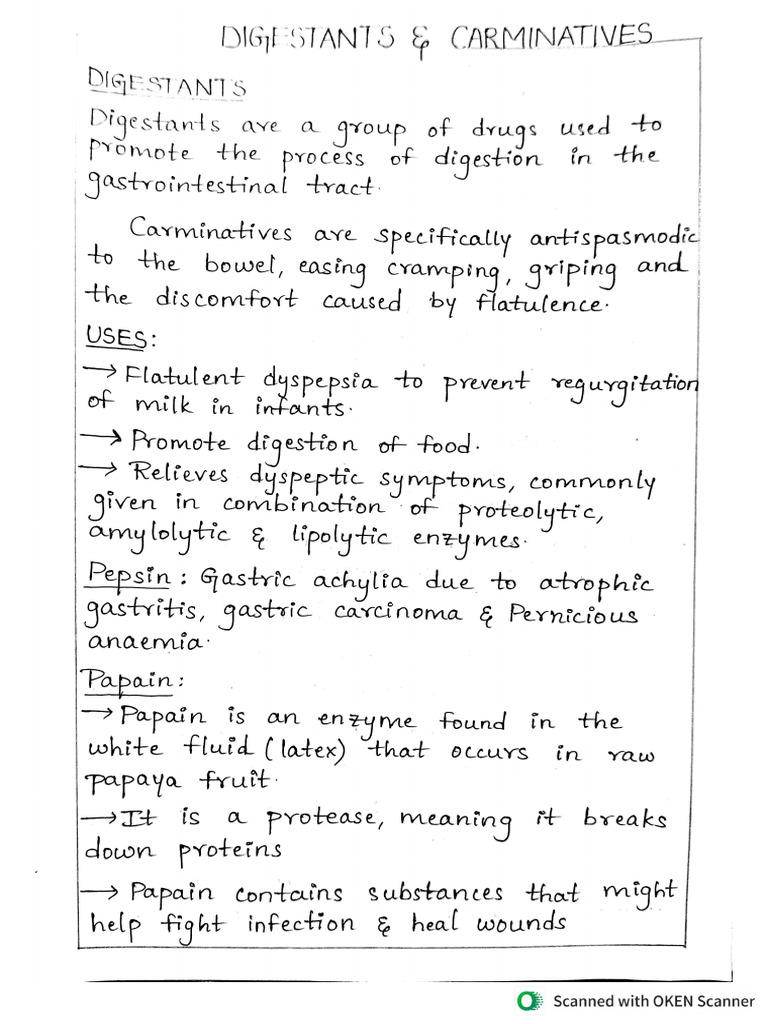 DIGESTANTS & CARMINATIVES
DIGESTANTS
Digestants are a group of drugs used to
promote the process of digestion in the
gastrointestinal tract.
Carminatives are specifically antispasmodic
to the bowel, easing cramping, griping and
the discomfort caused by flatulence.
USES:
→ Flatulent dyspepsia to prevent regurgitation
of milk in infants.
→ Promote digestion of food.
→ Relieves dyspeptic symptoms, commonly
given in combination of proteolytic,
amylolytic & lipolytic enzymes.
Pepsin: Gastric achylia due to atrophic
gastritis, gastric carcinoma & Pernicious
anaemia.
Papain:
→ Papain is an enzyme found in the
white fluid (latex) that occurs in raw
papaya fruit.
→ It is a protease, meaning it breaks
down proteins
→ Papain contains substances that might
help fight infection & heal wounds
Scanned with OKEN Scanner